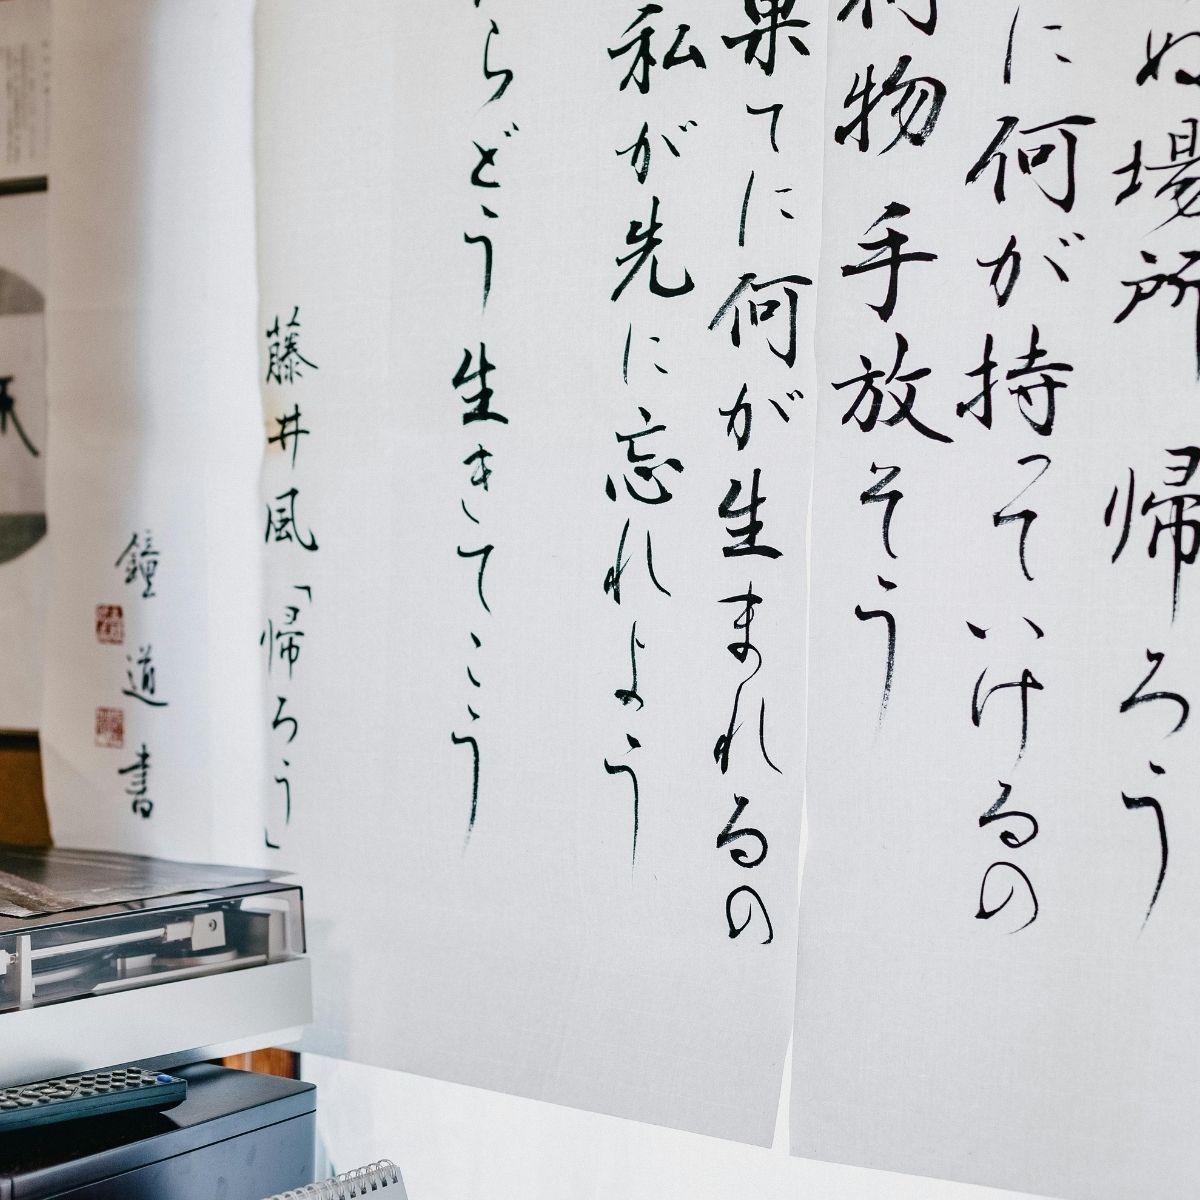 ぬ場所 帰ろう
に何が持っていけるの
荷物 手放そう
果てに何が生まれるの
私が先に忘れよう
らどう生きてこう
藤井風「帰ろう」
鐘道書